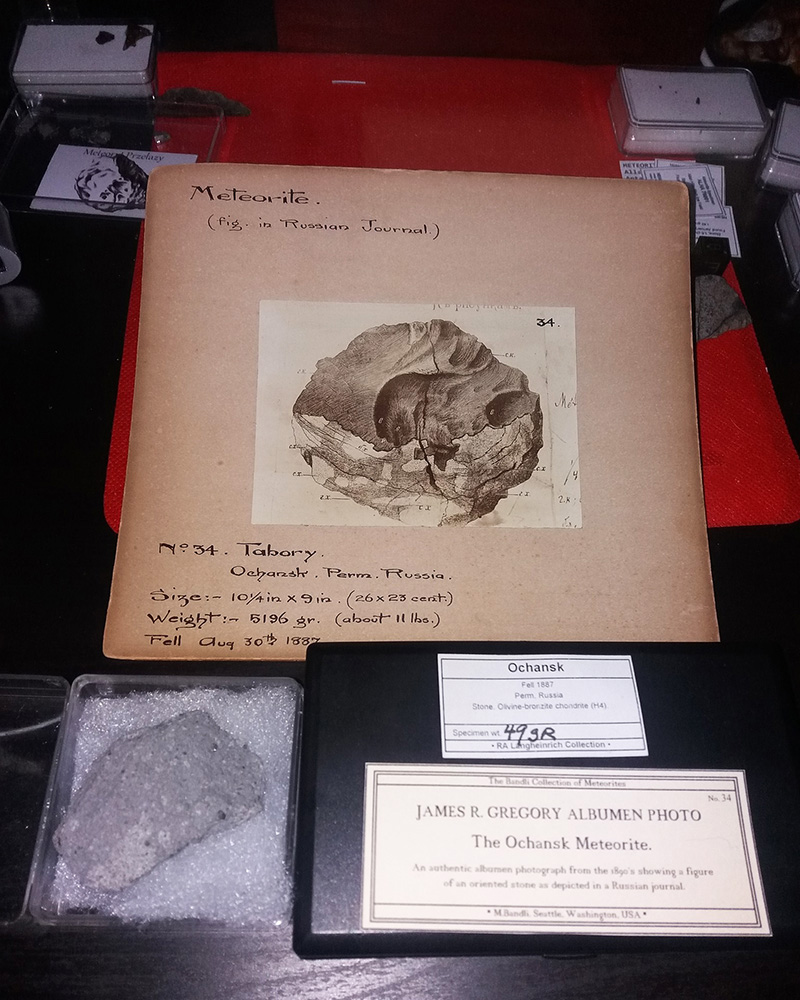 Meteorite.
(fig. in Russian Journal.)
34.
No. 34. Tabory.
Ochansk. Perm. Russia.
Size:- 10¼ in X 9 in. (26 x 23 cent.)
Weight:- 5196 gr. (about 11 lbs.)
Fell Aug 30th 1887
Ochansk
Fell 1887
Perm, Russia
Stone, Olivine-bronzite chondrite (H4)
Specimen wt. 49gR
• RA Langheinrich Collection •
The Bandli Collection of Meteorites
No. 34
JAMES R. GREGORY ALBUMEN PHOTO
The Ochansk Meteorite.
An authentic albumen photograph from the 1890's showing a figure
of an oriented stone as depicted in a Russian journal.
• M.Bandli, Seattle, Washington, USA •
Przełazy
METEORIT